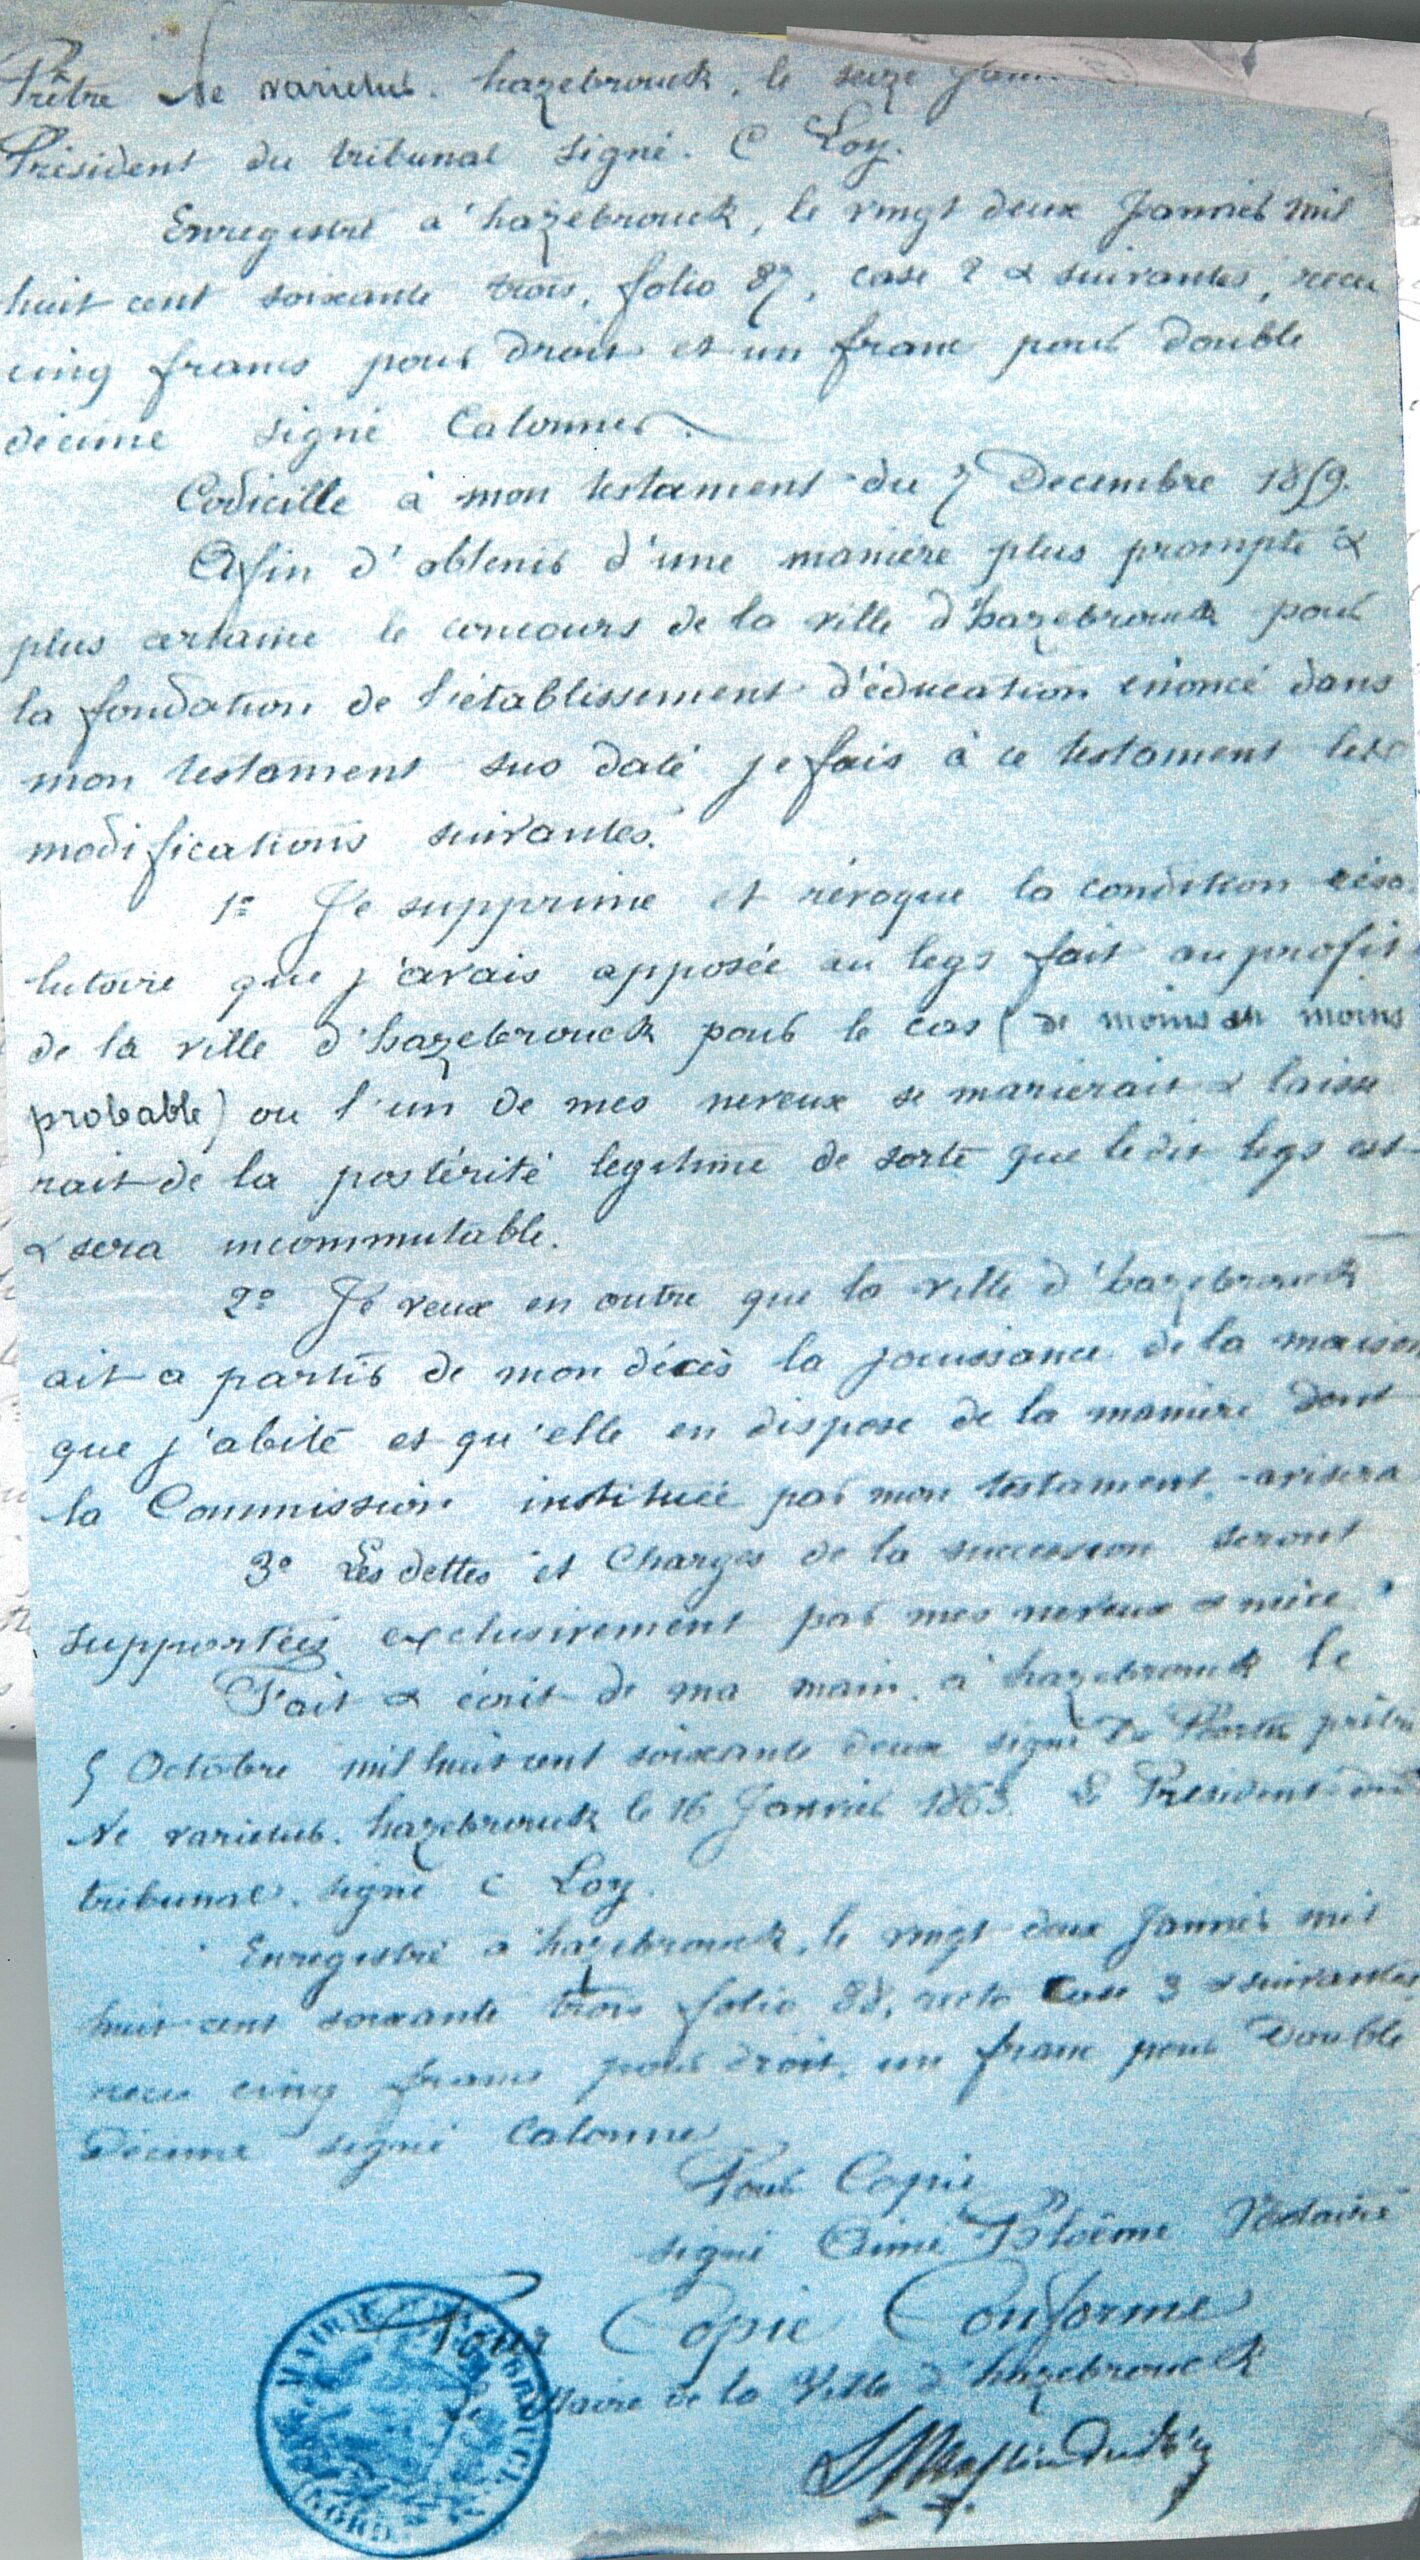 Prêtre Ne varietur. hazebrouck, le seize
Président du tribunal signé. C Loy.
Enregistré a hazebrouck, le vingt deux Janvier mil
huit cent soixante trois, folio 87, case 2 & suivantes, recu
cinq francs pour droit et un franc pour double
décime signé Calonne.
Codicille à mon testament du 7 Decembre 1859.
Afin d'obtenir d'une manière plus prompte &
plus certaine le concours de la ville d'hazebrouck pour
la fondation de l'établissement d'éducation énoncé dans
mon testament sus daté je fais à ce testament les
modifications suivantes.
1º Je supprime et révoque la condition réso
lutoire que j'avais apposée au legs fait au profit
de la ville d'hazebrouck pour le cas (de moins en moins
probable) ou l'un de mes neveux se marierait & laisse
rait de la postérité legitime de sorte que ledit legs est
& sera incommutable.
2º Je veux en outre que la ville d'hazebrouck
ait a partir de mon décès la jouissance de la maison
que j'abite et qu'elle en dispose de la manière dont
la Commission instituée par mon testament avisera
3º Les dettes et Charges de la succession seront
supportées exclusivement par mes neveux & nièce
Fait & écrit de ma main à hazebrouck le
5 Octobre mil huit cent soixante deux signé De prêtre
Ne varietur. hazebrouck le 16 Janvier 1863. Le President du
tribunal. signé C Loy.
Enregistré a hazebrouck, le vingt deux Janvier mil
huit cent soixante trois folio 88, recto Case 3 & suivantes
recu cinq francs pour droit, un franc pour Double
Décime signé Calonne
Pour Copie
signé Aimé Notaire
Pour Copie Conforme
Le Maire de la Ville d'hazebrouck
MAIRIE D'HAZEBROUCK
(NORD)